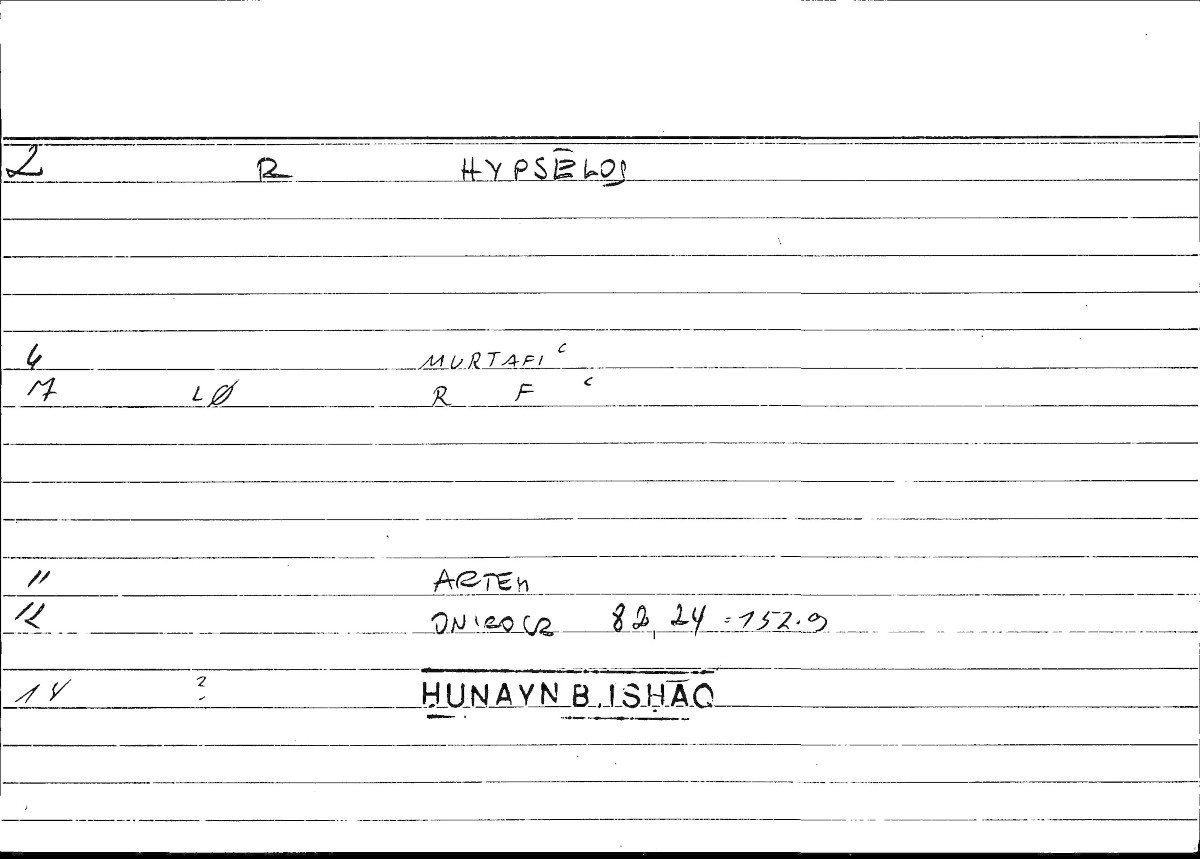 2 R HYPSĒLOS
6 MURTAFIʿ
7 LØ R F ʿ
11 ARTEM
12 ONIROCR 82,24 = 152.9
14 ? ḤUNAYN B. ISḤĀQ